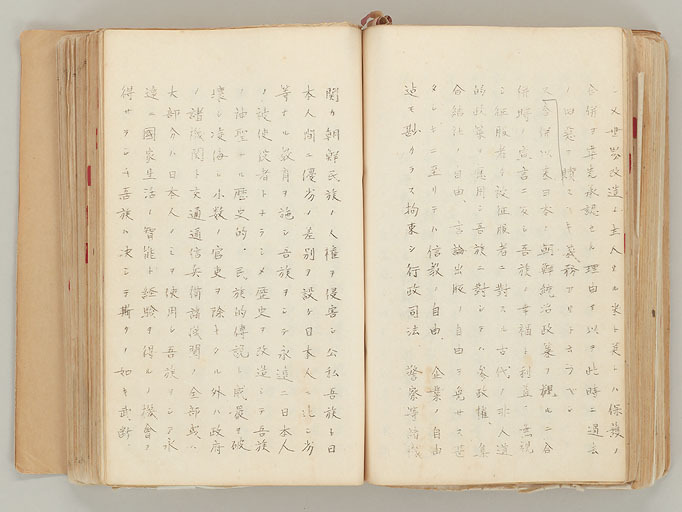 又世界改造ノ主人タル米ト英トハ保護ノ
合併ヲ率先承認セル理由ヲ以テ此時ニ過去
ノ旧悪ヲ贖フ義務アリト云フベシ
又合併以来日本ノ朝鮮統治政策ヲ見ルニ合
併時ノ宣言ニ反シ吾族ノ幸福ト利益ヲ無視
シ征服者カ被征服者ニ對スル古代ノ非人道
的政策ヲ應用シ吾族ニ對シテハ参政権、集
会結社ノ自由、言論出版ノ自由ヲ免サス甚
タシキニ至リテハ信教ノ自由、企業ノ自由
迄モ尠クラス拘束シ行政司法警察等諸機
関カ朝鮮民族ノ人權ヲ侵害シ公私吾族ト日
本人間ニ優劣ノ差別ヲ設ケ日本人ニ比シ劣
等ナル教育ヲ施シ吾族ヲシテ永遠ニ日本人
ノ被使役者トナラシメ歴史ヲ改造シテ吾族
ノ神聖ナル歴史的、民族的傳説ト威嚴ヲ破
壊シ凌侮シ小数ノ官吏ヲ除キタル外ハ政府
ノ諸機関ト交通通信兵備諸機関ノ全部或ハ
大部分ハ日本人ノミヲ使用シ吾族ヲシテ永
遠ニ國家生活ノ智能ト經驗ヲ得ルノ機會ヲ
得サラシム吾族ハ決シテ斯クノ如キ武断、